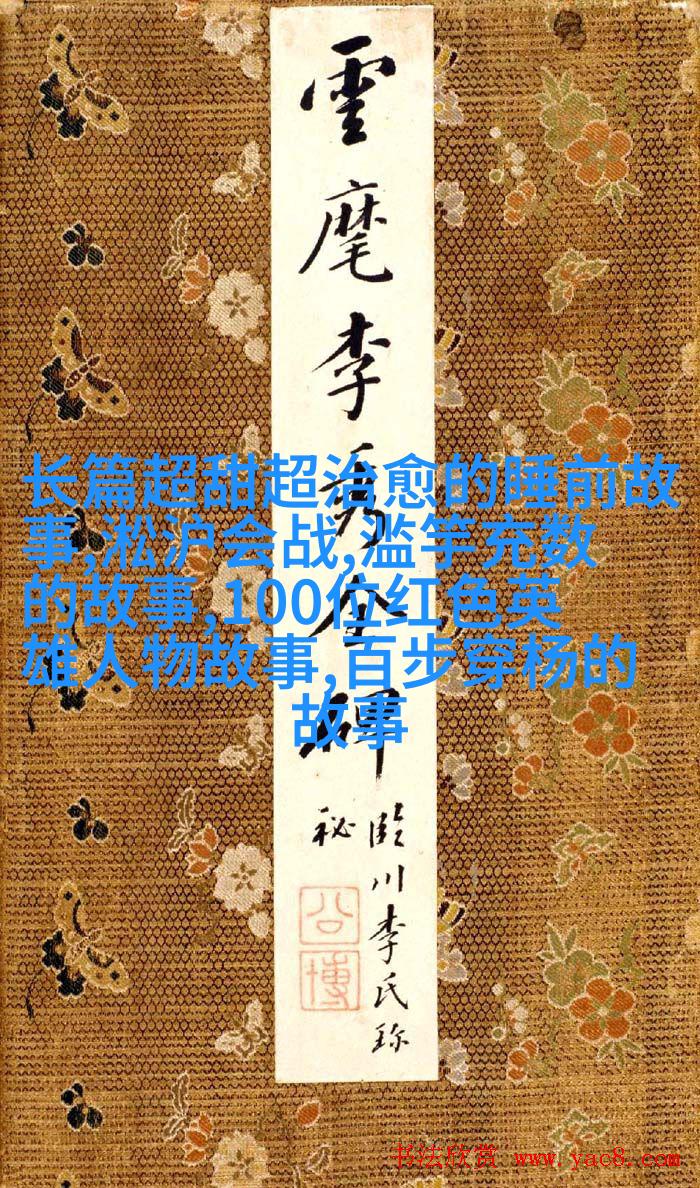 雲麾李秀全碑
臨川李氏珍
秘
公
博
长篇超甜超治愈的睡前故
事,淞沪会战,滥竽充数
的故事,100位红色英
雄人物故事,百步穿杨的
故事
书法欣赏 www.yac8.com